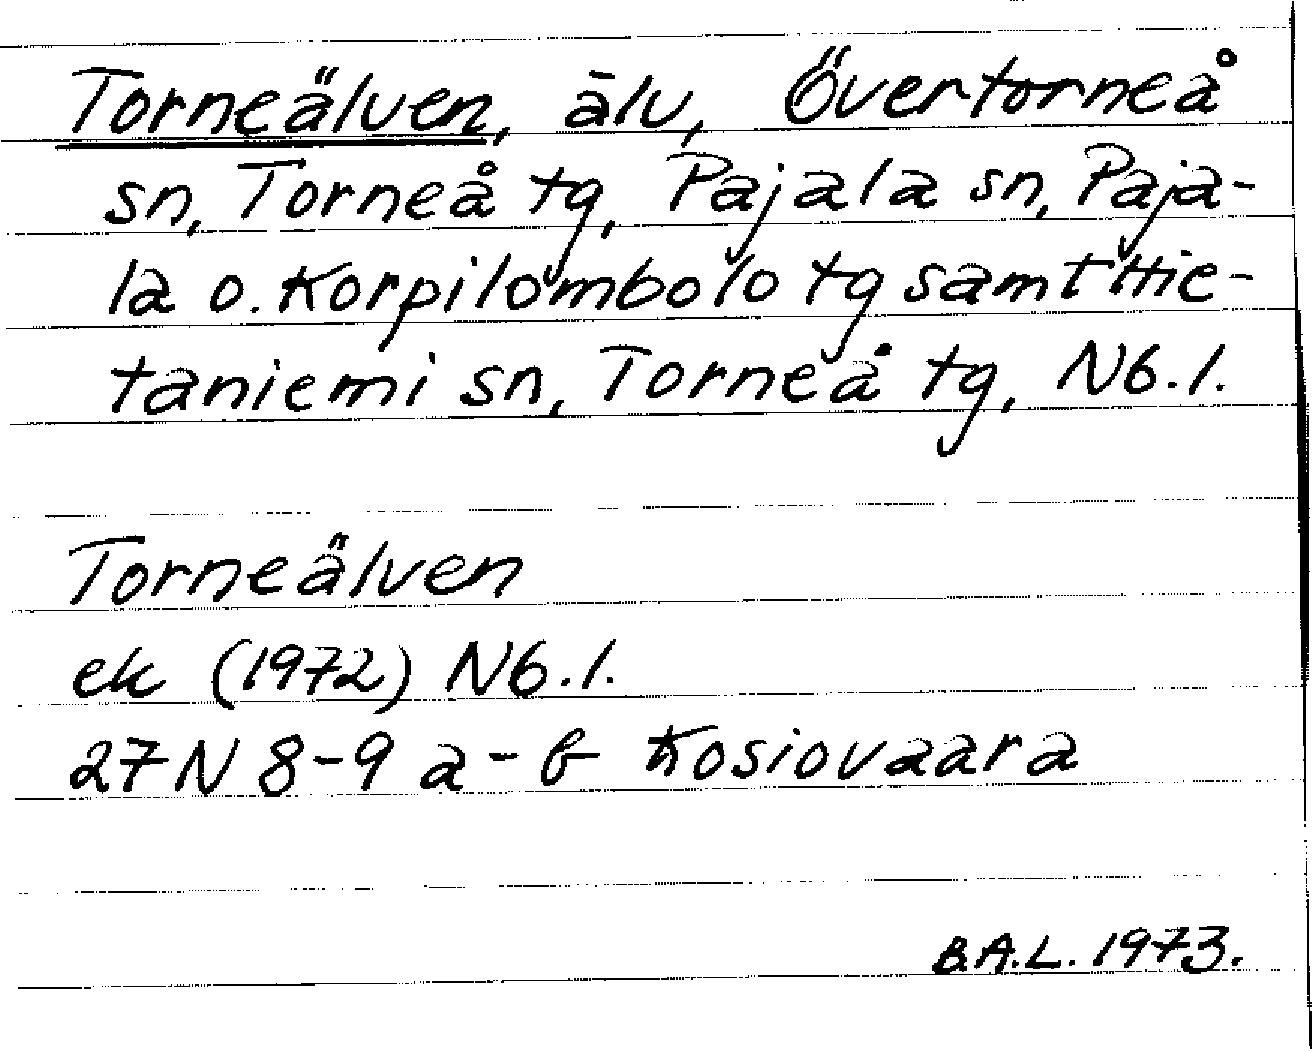 Torneälven, älv, Övertorneå
sn, Torneå tg, Pajala sn, Paja-
la o. Korpilombolo tg samt Hie-
taniemi sn, Torneå tg, Nb.l.
Torneälven
ek (1972) Nb.l.
27N 8-9 a-b Kosiovaara
B.A.L. 1973.